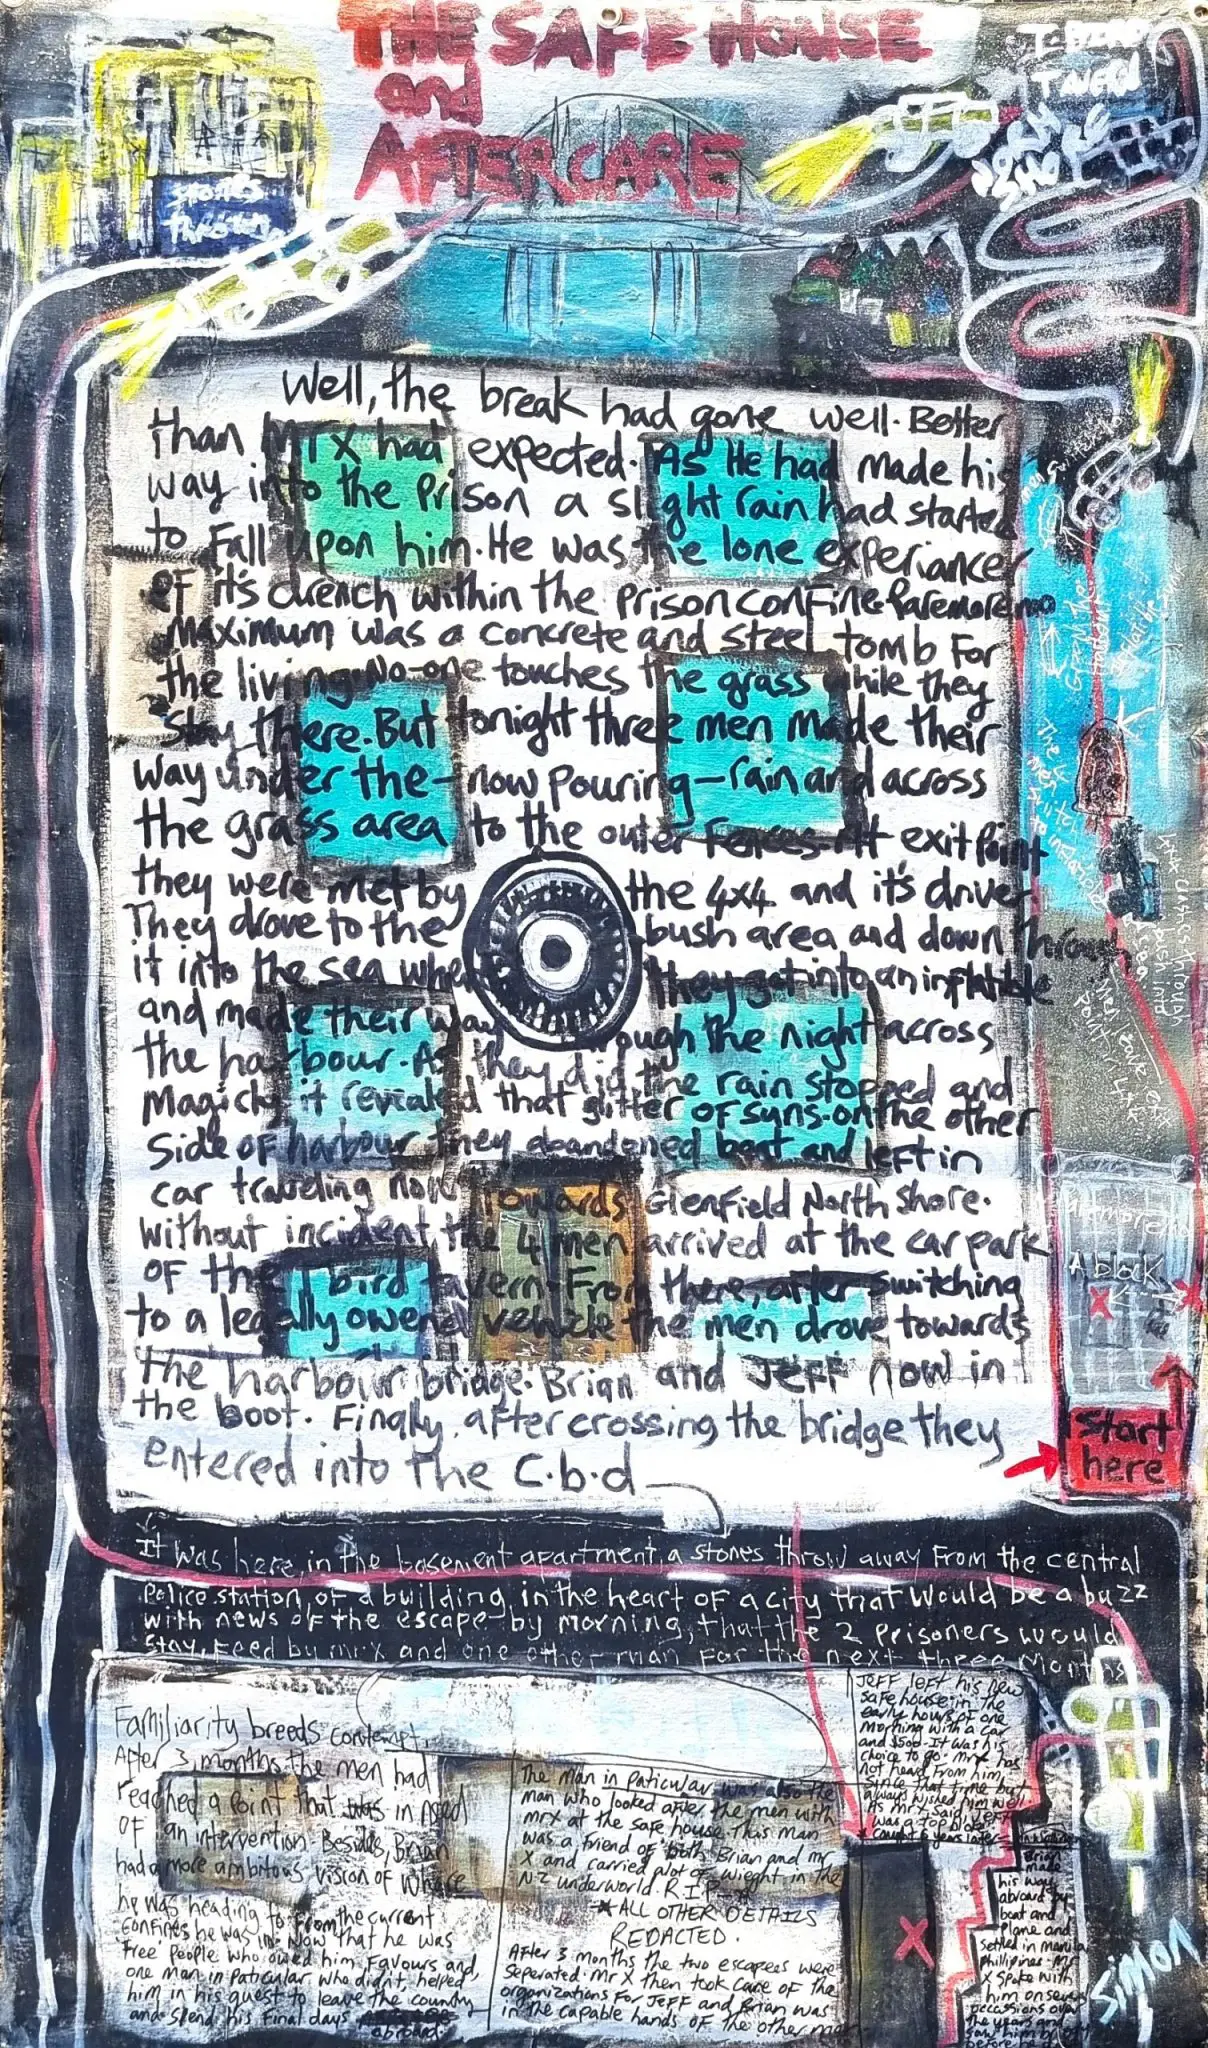 THE SAFE HOUSE
and
AFTERCARE
T-BIRD
TAVERN
STONES
throw
Well, the break had gone well. Better
than Mr x had expected. As He had made his
way into the Prison a slight rain had started
to Fall upon him. He was the lone experiancer
of it's drench within the Prison confine. Paremoremo
Maximum was a concrete and steel tomb For
the living. No-one touches the grass while they
stay there. But tonight three men made their
way under the - now pouring - rain and across
the grass area to the outer Fences. At exit Point
they were met by the 4x4 and it's driver
They drove to the bush area and down Through
it into the sea where they got into an inflatible
and made their way through the night across
the harbour. As they did the rain stopped and
Magicly it revealed that glitter of suns. on the other
side of harbour they abandoned boat and left in
car traveling now towards Glenfield North Shore.
without incident, the 4 men arrived at the carpark
of the T bird tavern. From there, after switching
to a legally owend vehicle the men drove towards
the harbour bridge. Brian and JEFF now in
the boot. Finally, after crossing the bridge they
entered into the C.b.d
Paremoremo
A block
Start
here
It was here, in the basement apartment, a stones throw away From the central
Police station, of a building in the heart of a city that would be a buzz
with news of the escape by morning, that the 2 prisoners would
stay, Feed by mr x and one other man For the next three months.
Familiarity breeds contempt.
After 3 months the men had
reached a Point that was in need
OF an intervention. Besides, Brian
had a more ambitous vision of where
he was heading to From the current
confines he was in. Now that he was
Free People who owed him Favours and,
one man in Paticular who didn't, helped
him in his quest to leave the country
and spend his Final days
abroad.
The man in Paticular was also the
man who looked after the men with
mr x at the safe house. This man
was a friend of both Brian and mr
X and carried alot of wieght in the
NZ underworld. R.I.P
ALL OTHER DETAILS
REDACTED.
After 3 months the two escapees were
seperated. Mr X then took care of the
organizations For Jeff and Brian was
in the capable hands of the other man
JEFF left his new
safe house in the
early hours of one
morning with a car
and $500. It was his
choice to go. Mr x has
not heard from him
since that time but
always wished him well
As mr x said, "JEFF
was a top bloke"
x caught 6 years later
Brian
made
his way
abroad by
boat and
Plane and
settled in Manila
Philipines. Mr
X spoke with
him on several
occassions over
the years and
saw him
before he
Simon